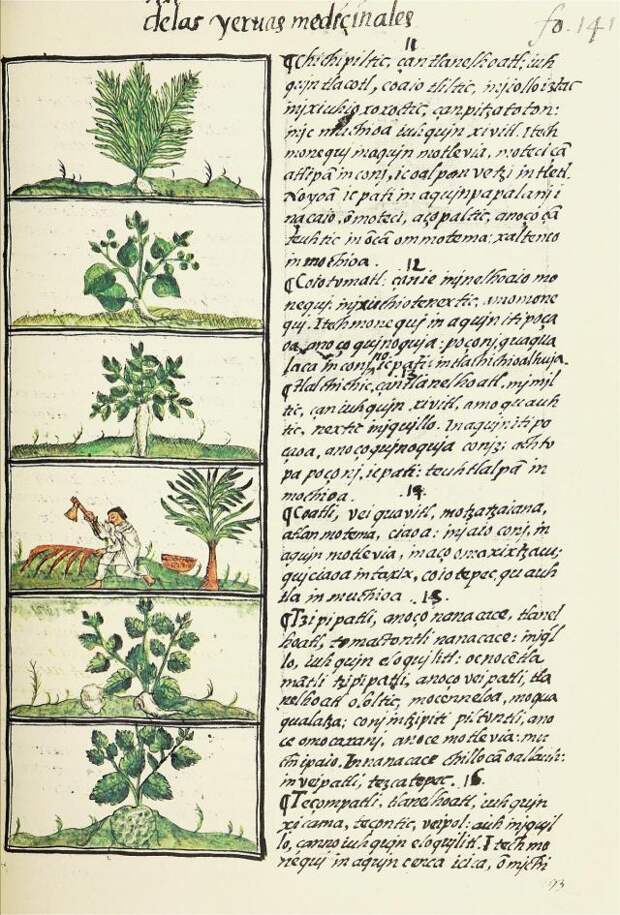 delas yeruas mediçinales
fo. 141
11
¶Chichipiltic, çan tlanelhoatl: iuh
quin tlacotl, coaio tliltic, injiollo iztac
injxiuhio xoxoctic, çan pitzatoton:
njc muchioa iuhqujn xivitl. Itech
monequj in aqujn motlevia, moteci çã
atl ipã in conj, ic oalpan vetzi in tletl.
No yoã ic pati in aqujn papalanj i
nacaio, õmoteci, aço paltic, anoço çã
teuhtic in õcã ommotema: xaltenco
in mochioa.
12
¶Cototomatl: çanie injnelhoaio mo
nequj. injxiuhio tenextic. amo mone
quj. Itech monequj in aqujn itipoça
oa, anoço qujnoquja: poçonj, quaqua
laca in conj, ic pati: in tlalhichioalhuja.
no
13
¶tlalchichic, çan tlanelhoatl, mjmjl
tic, çan iuhqujn xivitl, amo quauh
tic, nextic injqujllo. Inaqujn itipo
çaoa, anoço qujnoquja conjz; achto
pa poçonj, ic pati: teuhtlalpã in
mochioa.
14
¶Coatli, vei quavitl, motzatzaiana,
atlan motema, ciaoa: injaio conj, in
aqujn motlevia, in aço omaxixtzacu;
qujciaoa intaxix, coiotepec quauh
tla in muchioa.
15
¶Tzipipatli, anoço nanacace, tlanel
hoatl, tomactontli nanacace: injqjl
lo, iuhqujn eloqujlitl: ocnocẽtla
mãtli tzipipatli, anoço veipatli, tla
nelhoatl ololtic, mocenneloa, moqua
qualatza; conj intzipitl piltontli, ano
ce omocaxanj, anoce motlevia: mu
chi ipaio. In nanacace chilloçã oallauh:
in veipatli, tezcatepec.
16
¶Teçompatli, tlanelhoatl, iuhqujn
xicama, teçontic, veipol: auh injqujl
lo, çanno iuhqujn eloqujlitl. Itech mo
nequj in aqujn cenca icica, õmjchi
93